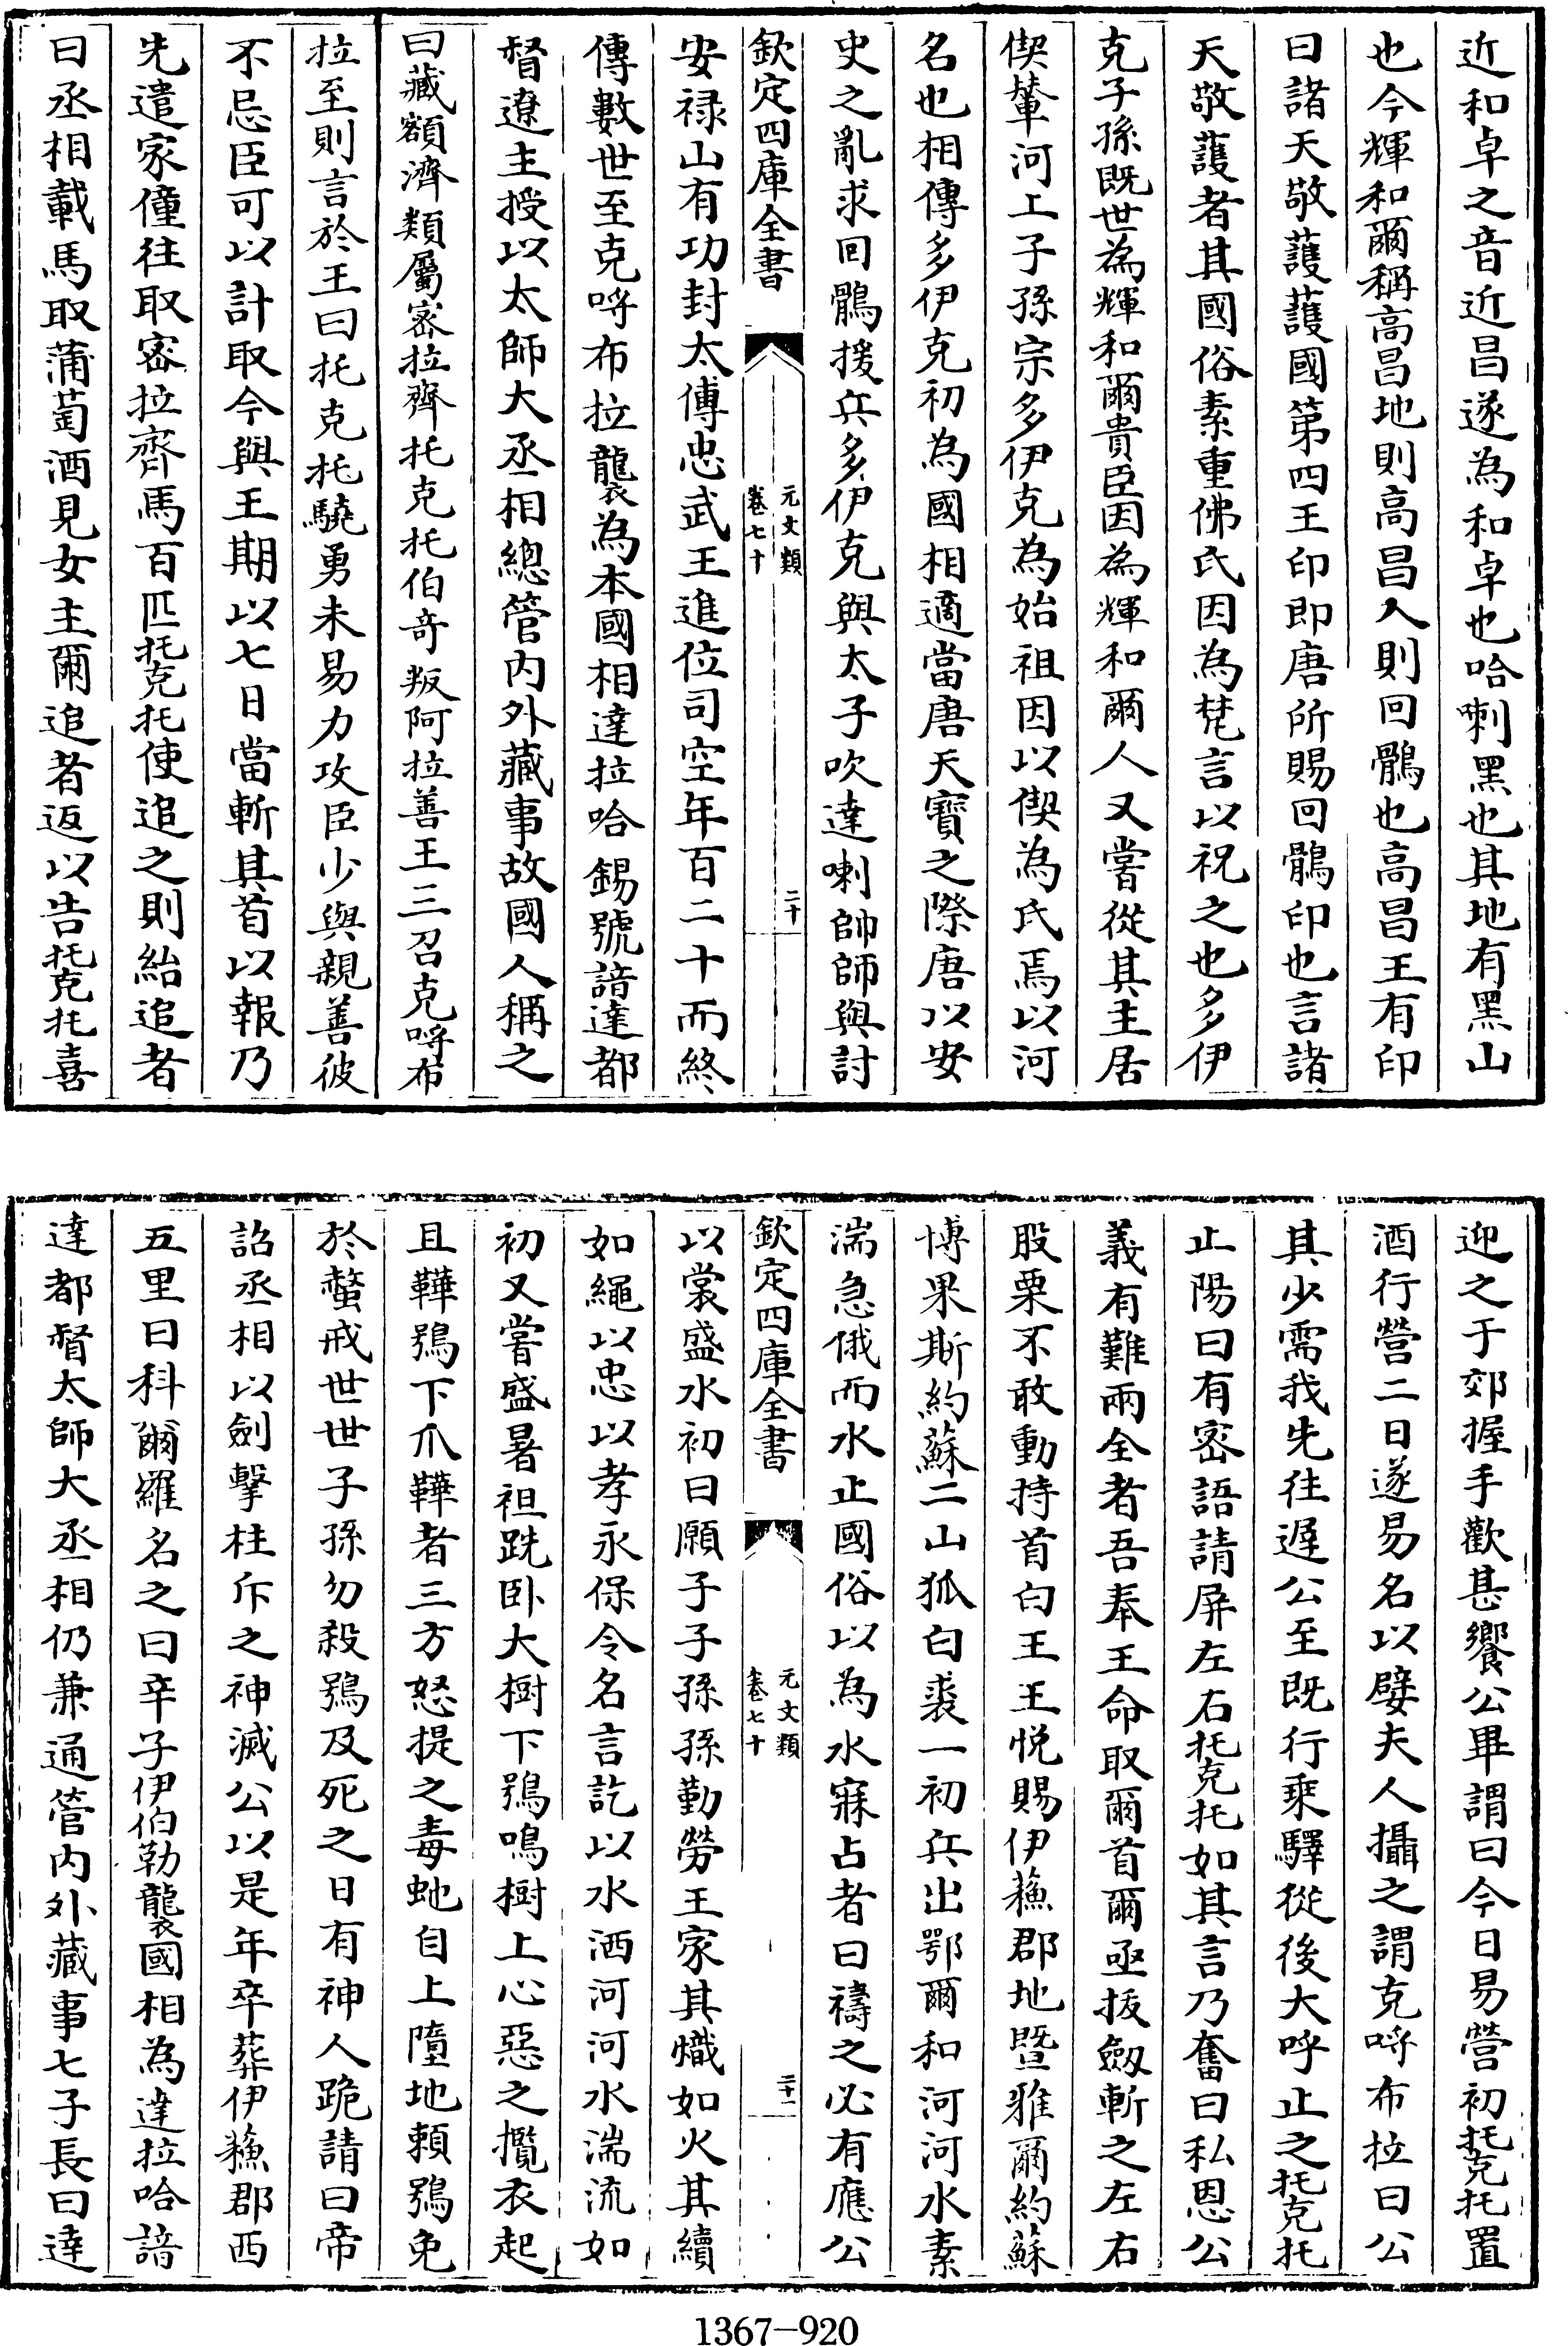 近和卓之音近昌遂為和卓也哈喇黑也其地有黑山
也今輝和爾稱高昌地則高昌人則回鶻也高昌王有印
曰諸天敬護護國第四王印即唐所賜回鶻印也言諸
天敬護者其國俗素重佛氏因為梵言以祝之也多伊
克子孫既世為輝和爾貴臣因為輝和爾人又嘗從其主居
偰輦河上子孫宗多伊克為始祖因以偰為氏焉以河
名也相傳多伊克初為國相適當唐天寶之際唐以安
史之亂求回鶻援兵多伊克與太子吹達喇帥師與討
欽定四庫全書
元文類
卷七十
二十
安祿山有功封太傅忠武王進位司空年百二十而終
傳數世至克哷布拉襲為本國相達拉哈錫號諳達都
督遼主授以太師大丞相總管內外藏事故國人稱之
曰藏額濟類屬密拉齊托克托伯奇叛阿拉善王三召克哷布
拉至則言於王曰托克托驍勇未易力攻臣少與親善彼
不忌臣可以計取今與王期以七日當斬其首以報乃
先遣家僮往取密拉齊馬百匹托克托使追之則紿追者
曰丞相載馬取蒲萄酒見女主爾追者返以告托克托喜
迎之于郊握手歡甚饗公畢謂曰今日易營初托克托置
酒行營二日遂易名以嬖夫人攝之謂克哷布拉曰公
其少需我先往遲公至既行乘驛從後大呼止之托克托
止陽曰有密語請屏左右托克托如其言乃奮曰私恩公
義有難兩全者吾奉王命取爾首爾亟拔劍斬之左右
股栗不敢動持首白王王悅賜伊蘓郡地暨雅爾約蘇
博果斯約蘇二山狐白裘一初兵出鄂爾和河河水素
湍急俄而水止國俗以為水寐占者曰禱之必有應公
欽定四庫全書
元文類
卷七十
二十一
以裳盛水初曰願子子孫孫勤勞王家其熾如火其續
如繩以忠以孝永保令名言訖以水洒河河水湍流如
初又嘗盛暑袒跣臥大樹下鴞鳴樹上心惡之攬衣起
且鞾鴞下爪鞾者三方怒提之毒虵自上墮地頼鴞免
於螫戒世世子孫勿殺鴞及死之日有神人跪請曰帝
詔丞相以劍擊柱斥之神滅公以是年卒葬伊蘓郡西
五里曰科爾羅名之曰辛子伊伯勒襲國相為達拉哈諳
達都督太師大丞相仍兼通管內外藏事七子長曰達
1367-920